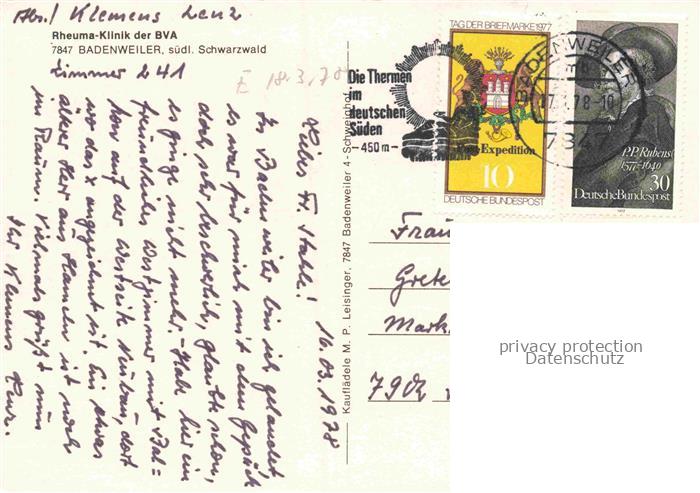 Abs./ Klemens Lenz
Rheuma-Klinik der BVA
7847 BADENWEILER, südl. Schwarzwald
Zimmer 241
E 18.3.78
Liebes Frl. Stahle! 16.03.1978
In Badenweiler bin ich gelandet
es war für mich mit dem Gepäck
doch sehr beschwerlich, glaubte schon,
es ginge nicht mehr. - Habe hier ein
freundliches Westzimmer mit Bal=
kon auf der Westseite Neubau, dort
wo das x angezeichnet ist. Ein etwas
älterer Herr aus Hameln ist noch
im Raum. Vielmals grüßt nun
Ihr Klemens Lenz.
Kauflädele M. P. Leisinger, 7847 Badenweiler 4 - Schweighof
Die Thermen
im
deutschen
Süden
- 450 m -
TAG DER BRIEFMARKE 1977
Post-Expedition
10
DEUTSCHE BUNDESPOST
BADENWEILER
78-18
7847
P.P. Rubens
1577-1640
30
Deutsche Bundespost
1977
Frau
Grete
Mark
790
privacy protection
Datenschutz